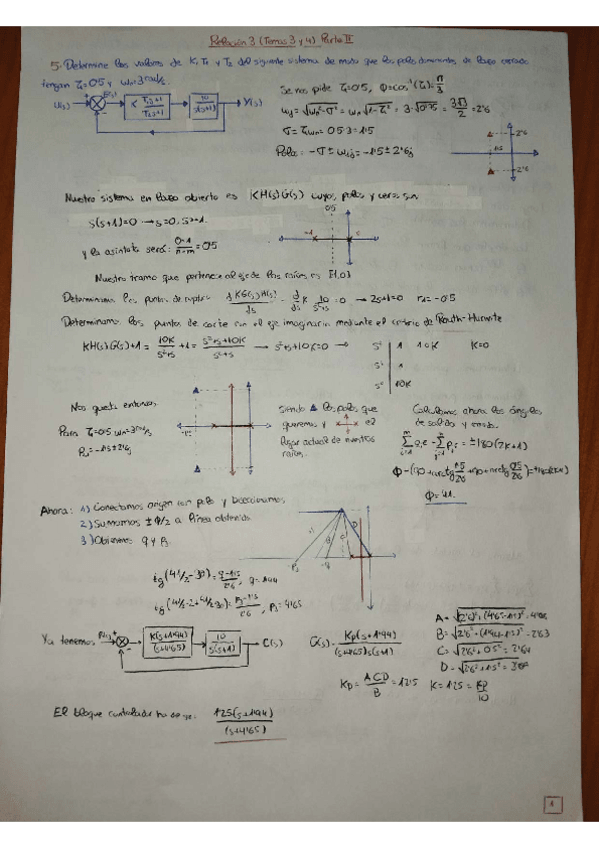 Relación 3 (Temas 3 y 4) Parte II
5. Determine los valores de K, T1 y T2 del siguiente sistema de modo que los polos dominantes de lazo cerrado
tengan ζ=0'5 y ωn=3 rad/s.
U(s) + E(s) K T1s+1 / T2s+1 10 / s(s+1) Y(s)
Se nos pide ζ=0'5, φ=cos⁻¹(ζ)=π/3
ωd=√ωn²-σ² = ωn√1-ζ² = 3·√0'75 = 3√3/2 = 2'6
σ=ζωn=0'5·3=1'5
Polo: -σ±ωdj=-1'5±2'6j
2'6
-1'5
-2'6
Nuestro sistema en lazo abierto es KH(s)G(s) cuyos polos y ceros son
s(s+1)=0 → s=0, s=-1.
0'5
-1
y la asíntota será: 0-1/n-m = 0'5
Nuestro tramo que pertenece al eje de las raíces es [-1,0]
Determinamos los puntos de ruptura d KG(s)H(s)/ds = d/ds K 10/s²+s = 0 → 2s+1=0 rd=-0'5
Determinamos los puntos de corte con el eje imaginario mediante el criterio de Routh-Hurwitz
KH(s)G(s)+1 = 10K/s²+s +1 = s²+s+10K/s²+s → s²+s+10K=0 → s² 1 10K K=0
s¹ 1
s⁰ 10K
Nos queda entonces
Para ζ=0'5 ωn=3rad/s
P1=-1'5±2'6j
siendo ▲ los polos que
queremos y el
lugar actual de nuestras
raíces.
Calculamos ahora los ángulos
de salida y
φ=41.
Ahora: 1) Conectamos origen con polo y bisecamos
2) Sumamos ±φ/2 a línea obtenida
3) Obtenemos q y p.
A B C D
-q
tg(41/2-30)=q-1'5/2'6, q=1'944
P1=4'65
Ya tenemos R(s) + K(s+1'94)/(s+4'65) 10/s(s+1) C(s)
G(s)=Kp(s+1'94)/(s+4'65)s(s+1)
A=√2'6²+(4'65-1'5)²
B=√2'6²+(1'94-1'5)²=2'63
C=√2'6²+0'5²=2'64
D=√2'6²+1'5²
Kp=ACD/B=12'5 K=1'25=Kp/10
El bloque controlador ha de ser: 1'25(s+1'94)/(s+4'65)
1